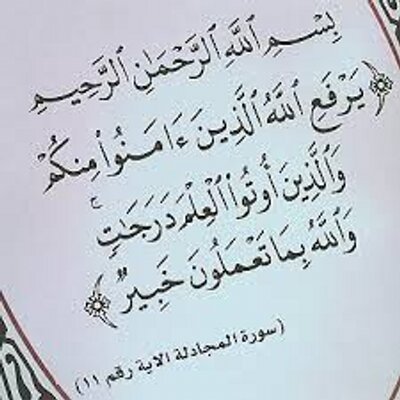 بِسْمِ ٱللَّهِ ٱلرَّحْمَٰنِ ٱلرَّحِيمِ
﴿ يَرْفَعِ ٱللَّهُ ٱلَّذِينَ ءَامَنُوا۟ مِنكُمْ
وَٱلَّذِينَ أُوتُوا۟ ٱلْعِلْمَ دَرَجَٰتٍۚ
وَٱللَّهُ بِمَا تَعْمَلُونَ خَبِيرٌ ﴾
(سورة المجادلة الاية رقم ١١)